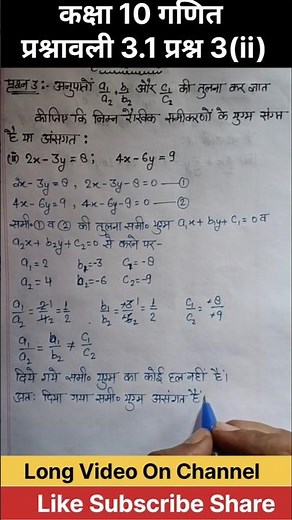 कक्षा 10 गणित
प्रश्नावली 3.1 प्रश्न 3(ii)
प्रश्न 3:- अनुपातों a₁/a₂, b₁/b₂ और c₁/c₂ की तुलना कर ज्ञात
कीजिए कि निम्न रैखिक समीकरणों के युग्म संगत
है या असंगत :
(ii) 2x - 3y = 8 ; 4x - 6y = 9
2x - 3y = 8 , 2x - 3y - 8 = 0 — ①
4x - 6y = 9 , 4x - 6y - 9 = 0 — ②
समी० ① व ② की तुलना समी० युग्म a₁x + b₁y + c₁ = 0 व
a₂x + b₂y + c₂ = 0 से करने पर -
a₁ = 2 b₁ = -3 c₁ = -8
a₂ = 4 b₂ = -6 c₂ = -9
a₁/a₂ = 2/4 = 1/2 b₁/b₂ = -3/-6 = 1/2 c₁/c₂ = -8/-9
a₁/a₂ = b₁/b₂ ≠ c₁/c₂
दिये गये समी० युग्म का कोई हल नहीं है।
अतः दिया गया समी० युग्म असंगत है
Long Video On Channel
Like Subscribe Share